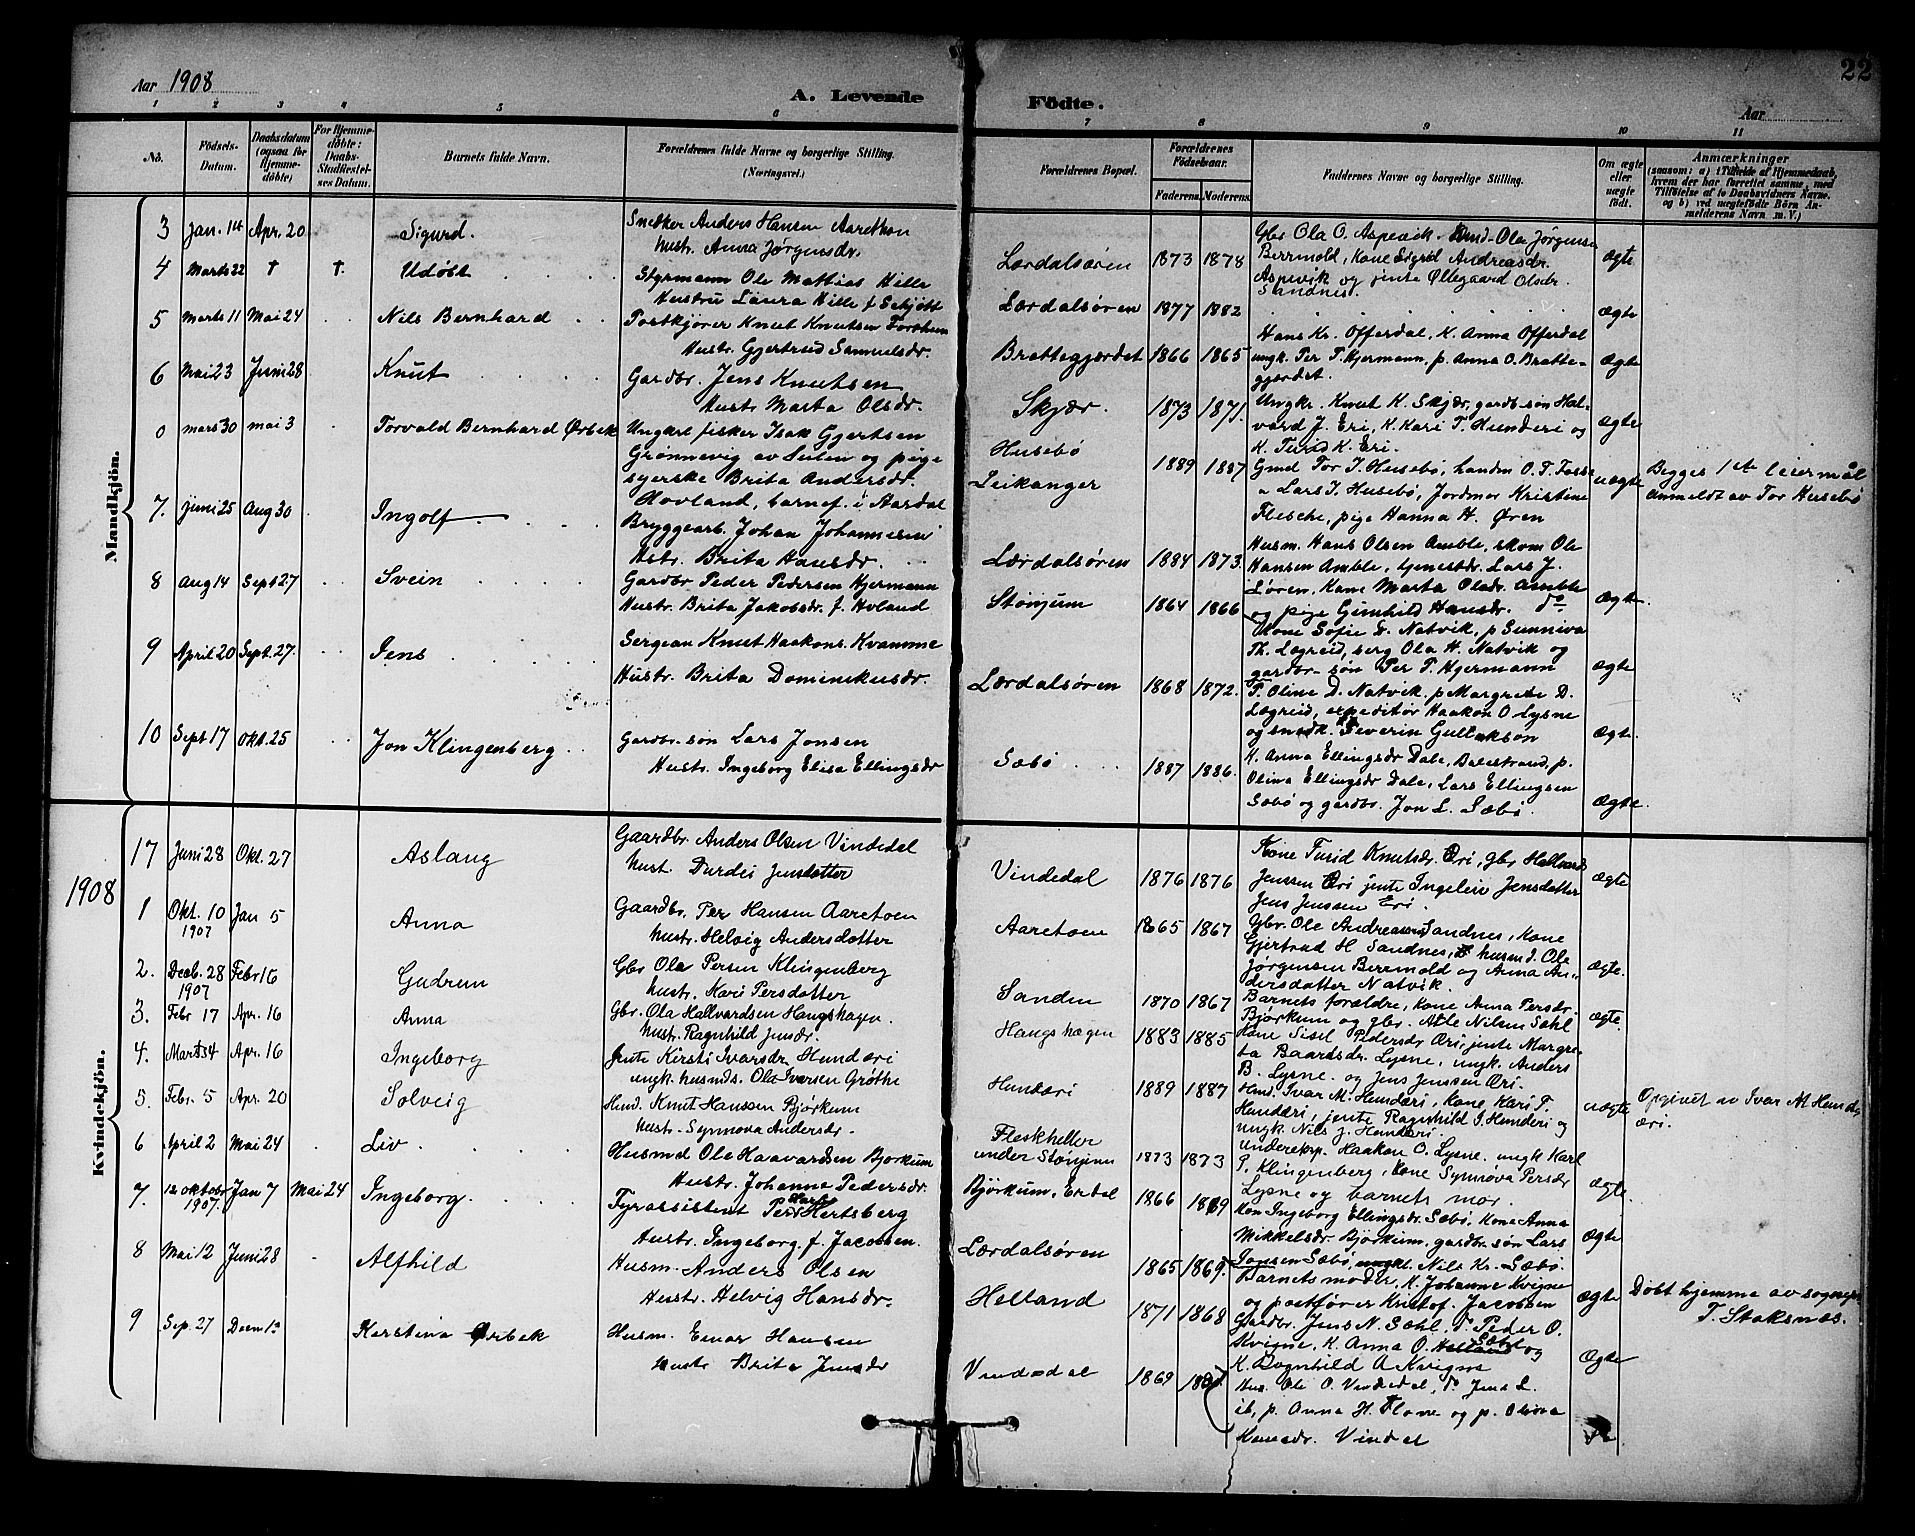 Aar 1908
A. Levende
Födte.
Aar
22
1 2 3 4 5 6 7 8 9 10 11
No.
Födsels-Datum.
Daabsdatum (ogsaa for Hjemme-döbte)
For Hjemme-döbte: Daabs-Stadfæstel-ses Datum.
Barnets fulde Navn.
Forældrenes fulde Navne og borgerlige Stilling. (Næringsvei.)
Forældrenes Bopæl.
Forældrenes Födselsaar.
Faderens. Moderens.
Faddernes Navne og borgerlige Stilling.
Om ægte eller uægte födt.
Anmærkninger
(saasom: a) i Tilfælde af Hjemmedaab,
hvem der har forrettet samme, med
Tilföielse af to Daabsvidners Navne,
og b) ved uægtefödte Börn An-
melderens Navn m. V.)
Mandkjön.
3 Jan. 14 Apr. 20 Sigurd. Snedker Anders Hansen Aarethon
hustr. Anna Jørgensdr. Lærdalsøren 1873 1878 ægte
Gbr Ola O. Aspevik Ola Jørgensen
Berrmold, Kone Sigrid Andreasdr.
Aspevik og jente Øllegaard Olsdr.
Sandnes.
4 Marts 22 † †. Udøbt Styrmann Ole Mathias Hille
Hustru Laura Hille f Schjött Lærdalsøren 1877 1882 ægte
5 Marts 11 Mai 24 Nils Bernhard Postkjører Knut Knutsen Forthun
Hustr. Gjertrud Samuelsdr. Brattegjerdet 1866 1865 ægte
Hans Kr. Offerdal, K. Anna Offerdal
ungk. Per T. Hjermann, p. Anna O. Bratte-
gjerdet.
6 Mai 23 Juni 28 Knut Gardbr. Jens Knutsen
Hustr Marta Olsdr. Skjær. 1873 1871. ægte
Ungkr. Knut K. Skjær, gardb. søn Hal-
vard J. Eri, K. Kari T. Hunderi og
K. Turid K. Eri.
0 mars 30 mai 3 Torvald Bernhard Ørbek Ungkar fisker Isak Gjertsen
Grønnevig av Sulen og pige
syerske Brita Andersdr.
Hovland, barnef. i Aardal Husebø
Leikanger 1889 1887 uægte
Gmd Tor I. Husebö, landm O. T. Foss
Lars I. Husebø, Jordmor Kristine
Flesche, pige Hanna H. Øren
Begges 1te leiermål
anmeldt av Tor Husebø
7. Juni 25 Aug 30 Ingolf Bryggearb. Johan Johannesen
Hstr. Brita Hansdr. Lærdalsøren 1884 1873.
Husm. Hans Olsen Amble, skom Ole
Hansen Amble, tjenestdr. Lars J.
Løren, Kone Marta Olsdr. Amble
og pige Gunhild Hansdr. do
8 Aug 14 Sept 27 Svein Gardbr Peder Pedersen Hjermann
Hustr. Brita Jakobsdr. f. Hovland Stønjum 1864 1866 ægte.
Kone Sofie D. Natvik, p Sunniva
Th. Lægreid, serg Ola H. Natvik og
gardbr. søn Per T. Hjermann
9 April 20 Sept. 27 Jens Sergean Knut Haakons. Kvamme
Hustr. Brita Dominikusdr. Lærdalsøren 1868 1872. ægte
P. Oline D. Natvik, p Margrete D.
Lægreid, expeditör Haakon O Lysne
og snedk. Severin Gullakson
10 Sept 17 Okt. 25 Jon Klingenberg Gardbr. søn Lars Jonsen
Hustr. Ingeborg Elisa Ellingsdr Sæbö 1887 1886. ægte.
K. Anna Ellingsdr Dale, Balestrand, p.
Olina Ellingsdr Dale, Lars Ellingsen
Sæbö og gardbr. Jon L. Sæbö Ægte.
Kvindekjön.
17 Juni 28 Okt. 27 Aslaug Gaardbr. Anders Olsen Vindedal
hust. Durdei Jensdatter Vindedal 1876 1876 ægte
Kone Turid Knutsdr. Eri, gbr Hallvard
Jenssen Eri jente Ingeleiv Jensdatter
Jens Jenssen Eri.
1908
1 Okt. 10
1907 Jan 5 Anna Gaardbr. Per Hansen Aaretoen
hustr. Helvig Andersdatter Aaretoen 1865 1867 ægte.
Gbr. Ole Andreasen Sandnes, Kone
Gjertrud H Sandnes, husm d. Ole
Jørgensen Bermold og Anna An-
dersdatter Natvik.
2. Decb. 28
1907 Febr 16 Gudrun Gbr Ola Persen Klingenberg
hustr. Kari Persdatter Sanden 1870 1867 ægte.
Barnets forældre, Kone Anna Persdr.
Bjørkum og gbr. Atle Nilsen Sæhl
3. Febr 17 Apr. 16 Anna Gbr. Ola Hallvardsen Haugshagen.
hust. Ragnhild Jensdr. Haugshagen 1883 1885
Kone Sissel Pedersdr Eri, jente Margre-
ta Baardsdr. Lysne, ungk. Anders
B. Lysne. og Jens Jenssen Eri.
4. Marts 4 Apr. 16 Ingeborg Jente Kirsti Ivarsdr Hunderi
ungk. husmds. Ola Iversen Grøthe Hunderi 1889 1887 uægte
Hmd. Ivar M. Hunderi, Kone Kari P.
Hunderi, jente Ragnhild I. Hunderi og
ungk Nils J. Hunderi.
Opgivet av Ivar M Hund-
eri.
5. Febr. 5 Apr. 20 Solveig Hmd. Knut Hanssen Bjørkum
hustr. Synnøva Andersdr. Fleskheller
under Stønjum 1873 1873
underekp. Haakon O. Lysne. ungk Karl
P. Klingenberg, Kone Synnøva Persdr
Lysne og barnets mor.
6 April 2 Mai 24 Liv. Husmd Ole Haavardsen Bjorkum
Hustr. Johanne Pedersdr. Bjørkum, Erdal 1866 1869 ægte.
Kon Ingeborg Ellingsdr. Sæbø, Kone Anna
Mikkelsdr. Bjørkum, gardbr. søn Lars
Jonsen Sæbø, ungk. Nils Kr. Sæbø.
7. 12 oktobr
1907. Jan 7 Mai 24 Ingeborg. Fyrassistent Peder Hertsberg
Hustr. Ingeborg f. Jacobsen. Lærdalsøren 1865 1869. Ægte
Barnets moder, K. Johanne Kvigne
og postfører Kristof. Jacobsen
Døbt hjemme av sognepr.
T. Staksnæs.
8 Mai 12 Juni 28 Alfhild Husm. Anders Olsen
Hustr. Helvig Hansdr. Helland 1871 1868 ægte
Gardbr. Jens N. Sæhl, do Peder O.
Kvigne, K. Anna O. Helland Sæhl og
K. Ragnhild A Kvigne
9 Sep. 27 Kerstina Ørbek Husm. Einar Hansen
Hustr Brita Jensdr Vindedal 1869 Ægte
Hus. Ole O. Vindedal, do Jens L.
ib, p. Anna H. Flone og p. Olina
Hansdr. Vindal